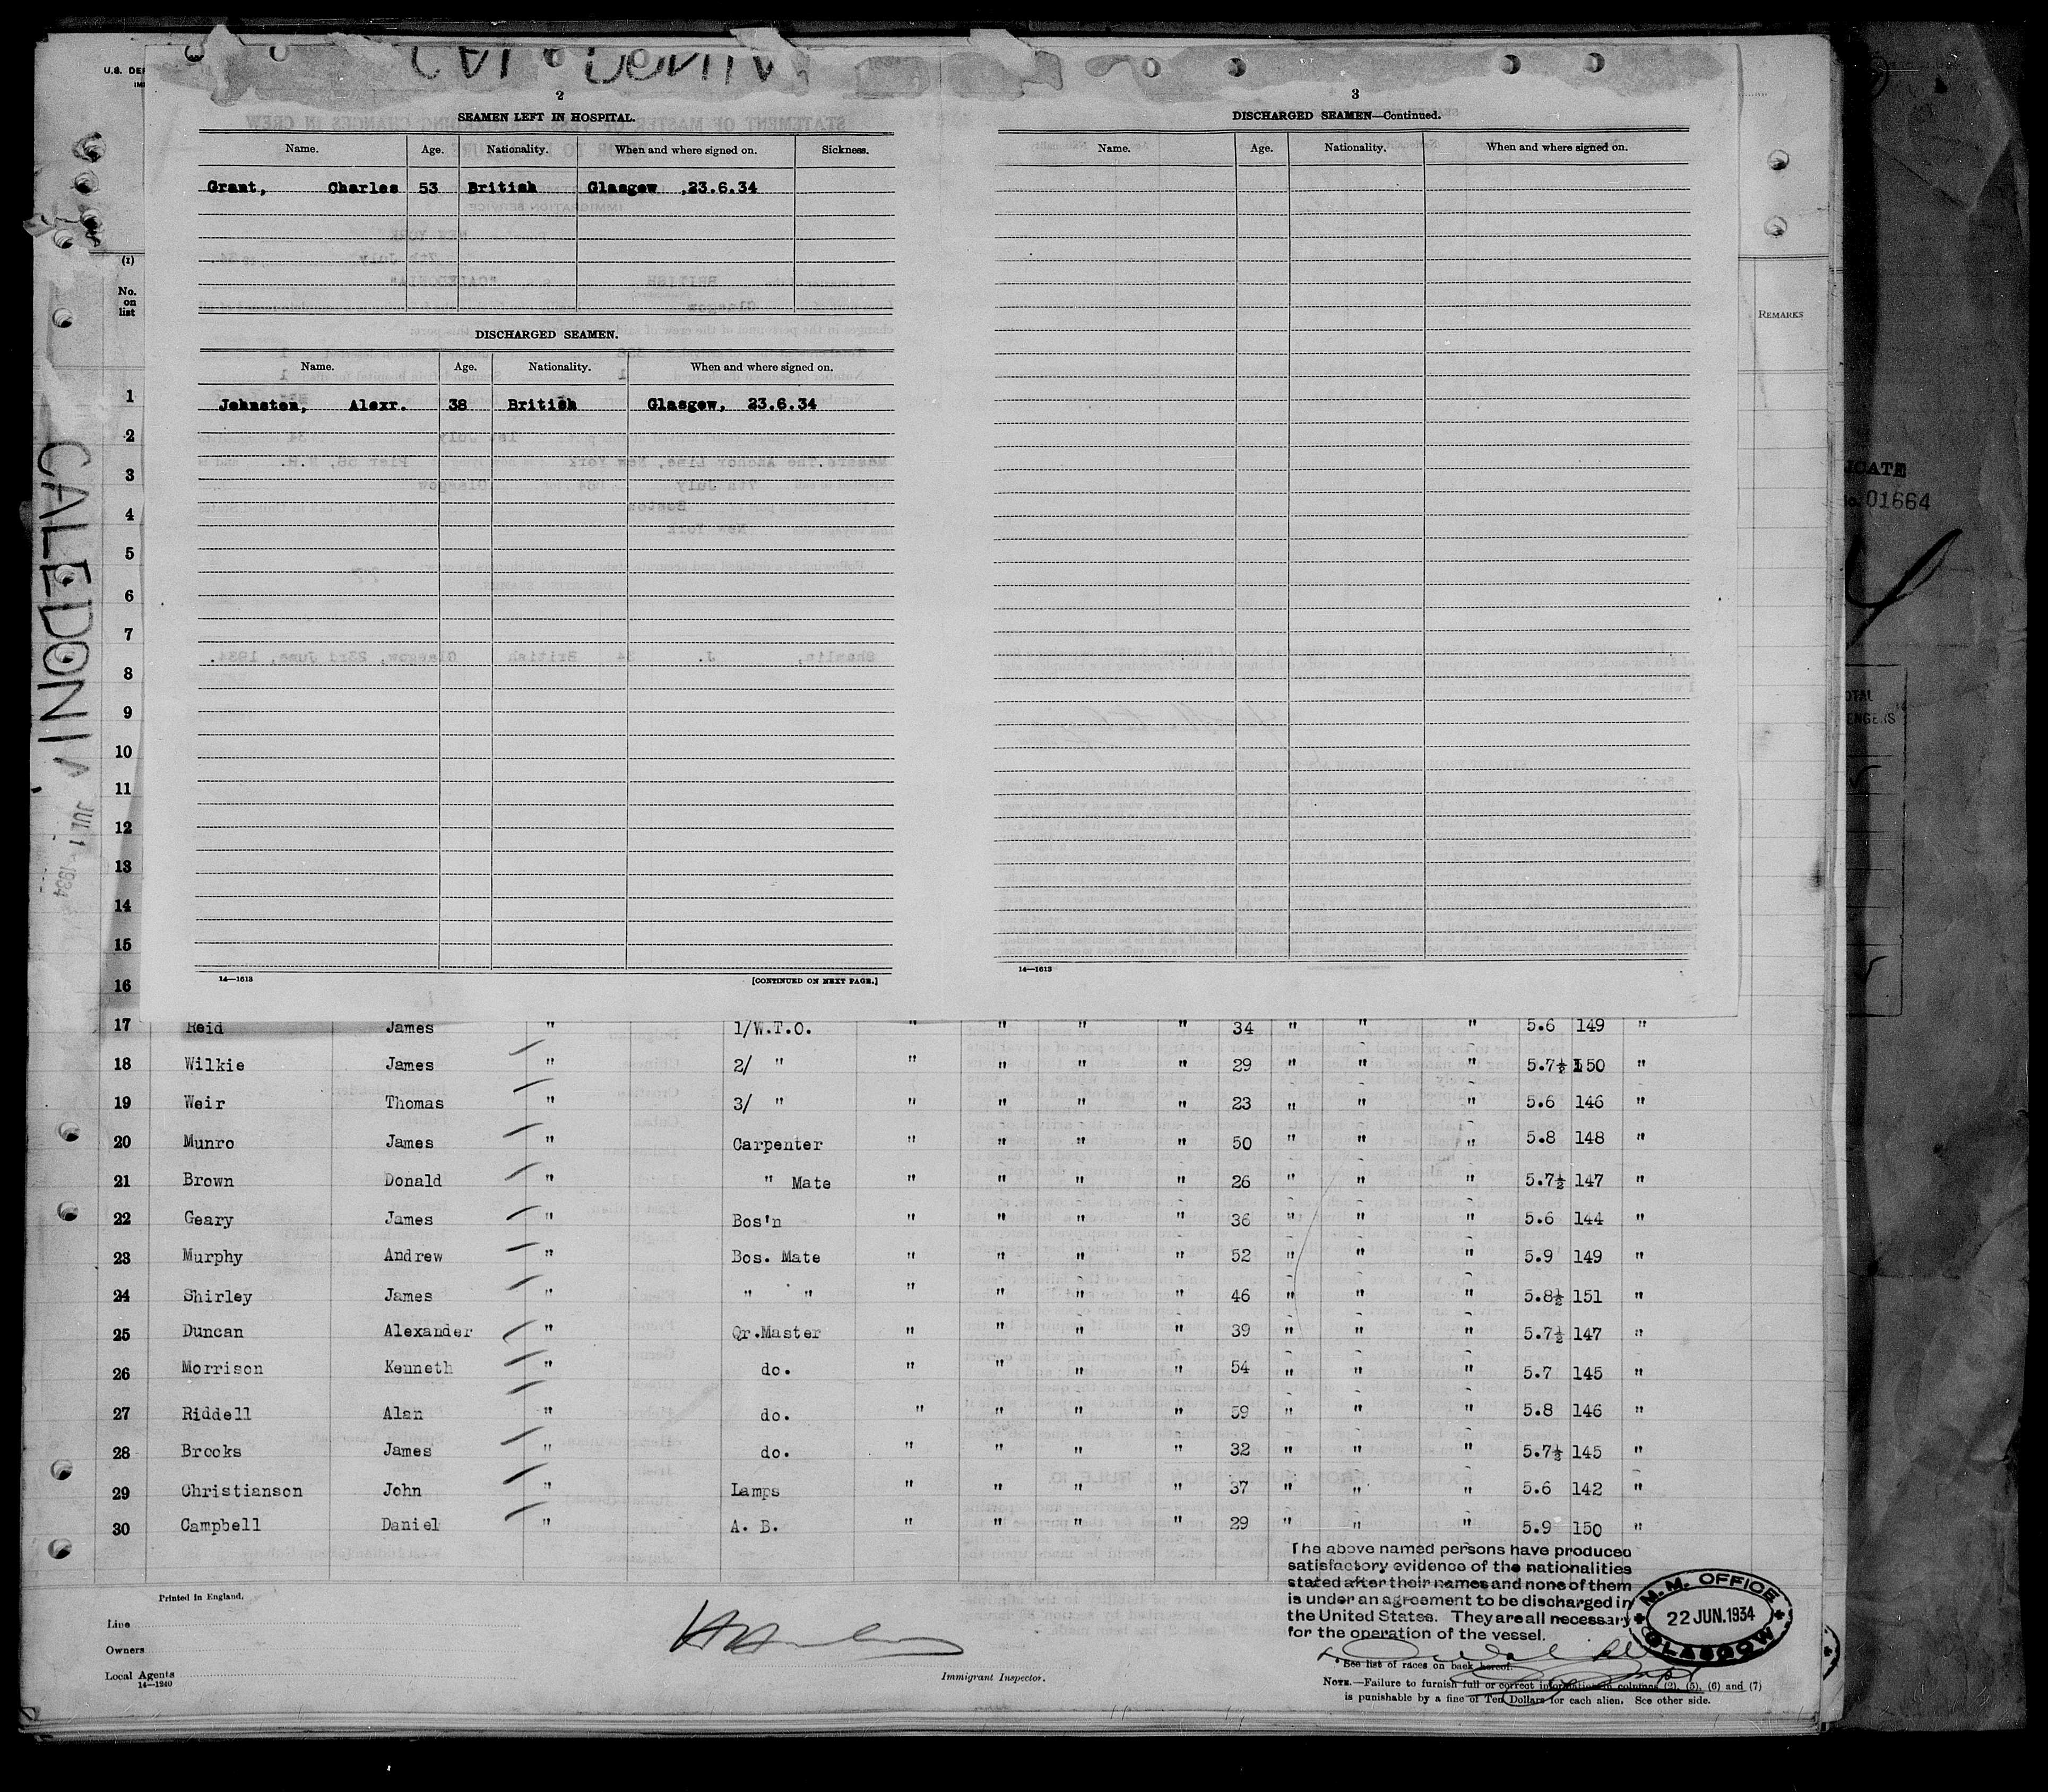 U.S. DE
IM
2
SEAMEN LEFT IN HOSPITAL.
Name. Age. Nationality. When and where signed on. Sickness.
Grant, Charles 53 British Glasgow ,23.6.34
DISCHARGED SEAMEN.
Name. Age. Nationality. When and where signed on.
Johnston, Alexr. 38 British Glasgow, 23.6.34
14—1613 [CONTINUED ON NEXT PAGE.]
3
DISCHARGED SEAMEN—Continued.
Name. Age. Nationality. When and where signed on.
14—1613
(1)
No. on list
REMARKS
CALEDONIA
JUL 1 - 1934
1
2
3
4
5
6
7
8
9
10
11
12
13
14
15
16
17 Reid James " 1/W.T.O. " " " " 34 " " " 5.6 149 "
18 Wilkie James " 2/ " " " " " 29 " " " 5.7½ 150 "
19 Weir Thomas " 3/ " " " " " 23 " " " 5.6 146 "
20 Munro James " Carpenter " " " " 50 " " " 5.8 148 "
21 Brown Donald " " Mate " " " " 26 " " " 5.7½ 147 "
22 Geary James " Bos'n " " " " 36 " " " 5.6 144 "
23 Murphy Andrew " Bos. Mate " " " " 52 " " " 5.9 149 "
24 Shirley James " " " " " " " 46 " " " 5.8½ 151 "
25 Duncan Alexander " Qr.Master " " " " 39 " " " 5.7½ 147 "
26 Morrison Kenneth " do. " " " " 54 " " " 5.7 145 "
27 Riddell Alan " do. " " " " 59 " " " 5.8 146 "
28 Brooks James " do. " " " " 32 " " " 5.7½ 145 "
29 Christianson John " Lamps " " " " 37 " " " 5.6 142 "
30 Campbell Daniel " A. B. " " " " 29 " " " 5.9 150 "
The above named persons have produced
satisfactory evidence of the nationalities
stated after their names and none of them
is under an agreement to be discharged in
the United States. They are all necessary
for the operation of the vessel.
M.M. OFFICE
22 JUN. 1934
GLASGOW
Printed in England.
Line
Owners
Local Agents
14—1240
Immigrant Inspector.
* See list of races on back hereof.
NOTE.—Failure to furnish full or correct information in columns (2), (5), (6) and (7)
is punishable by a fine of Ten Dollars for each alien. See other side.
ICATE
No. 01664
OTAL
ENGERS